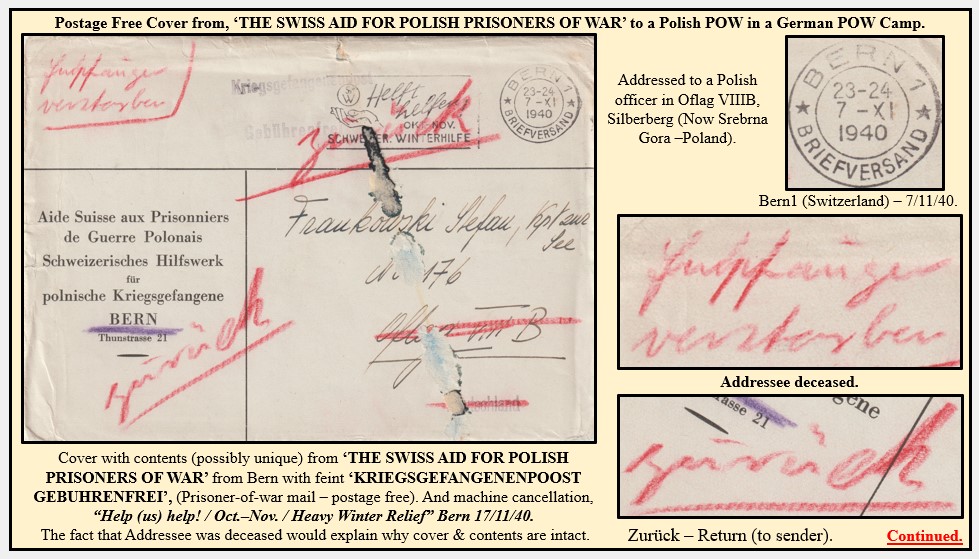 Postage Free Cover from, ‘THE SWISS AID FOR POLISH PRISONERS OF WAR’ to a Polish POW in a German POW Camp.
Empfänger
verstorben
Helft
helfen
OKT.-NOV.
SCHWEIZER. WINTERHILFE
BERN 1
23-24
7 -XI
1940
BRIEFVERSAND
zurück
Aide Suisse aux Prisonniers
de Guerre Polonais
Schweizerisches Hilfswerk
für
polnische Kriegsgefangene
BERN
Thunstrasse 21
zurück
Frankowski Stefan, Kpt zur
See
No 176
Oflag VIII B
Addressed to a Polish
officer in Oflag VIIIB,
Silberberg (Now Srebrna
Gora –Poland).
BERN 1
23-24
7 -XI
1940
BRIEFVERSAND
Bern1 (Switzerland) – 7/11/40.
Empfänger
verstorben
Addressee deceased.
rasse 21
gene
zurück
Zurück – Return (to sender).
Cover with contents (possibly unique) from ‘THE SWISS AID FOR POLISH
PRISONERS OF WAR’ from Bern with feint ‘KRIEGSGEFANGENENPOOST
GEBUHRENFREI’, (Prisoner-of-war mail – postage free). And machine cancellation,
“Help (us) help! / Oct.–Nov. / Heavy Winter Relief” Bern 17/11/40.
The fact that Addressee was deceased would explain why cover & contents are intact.
Continued.